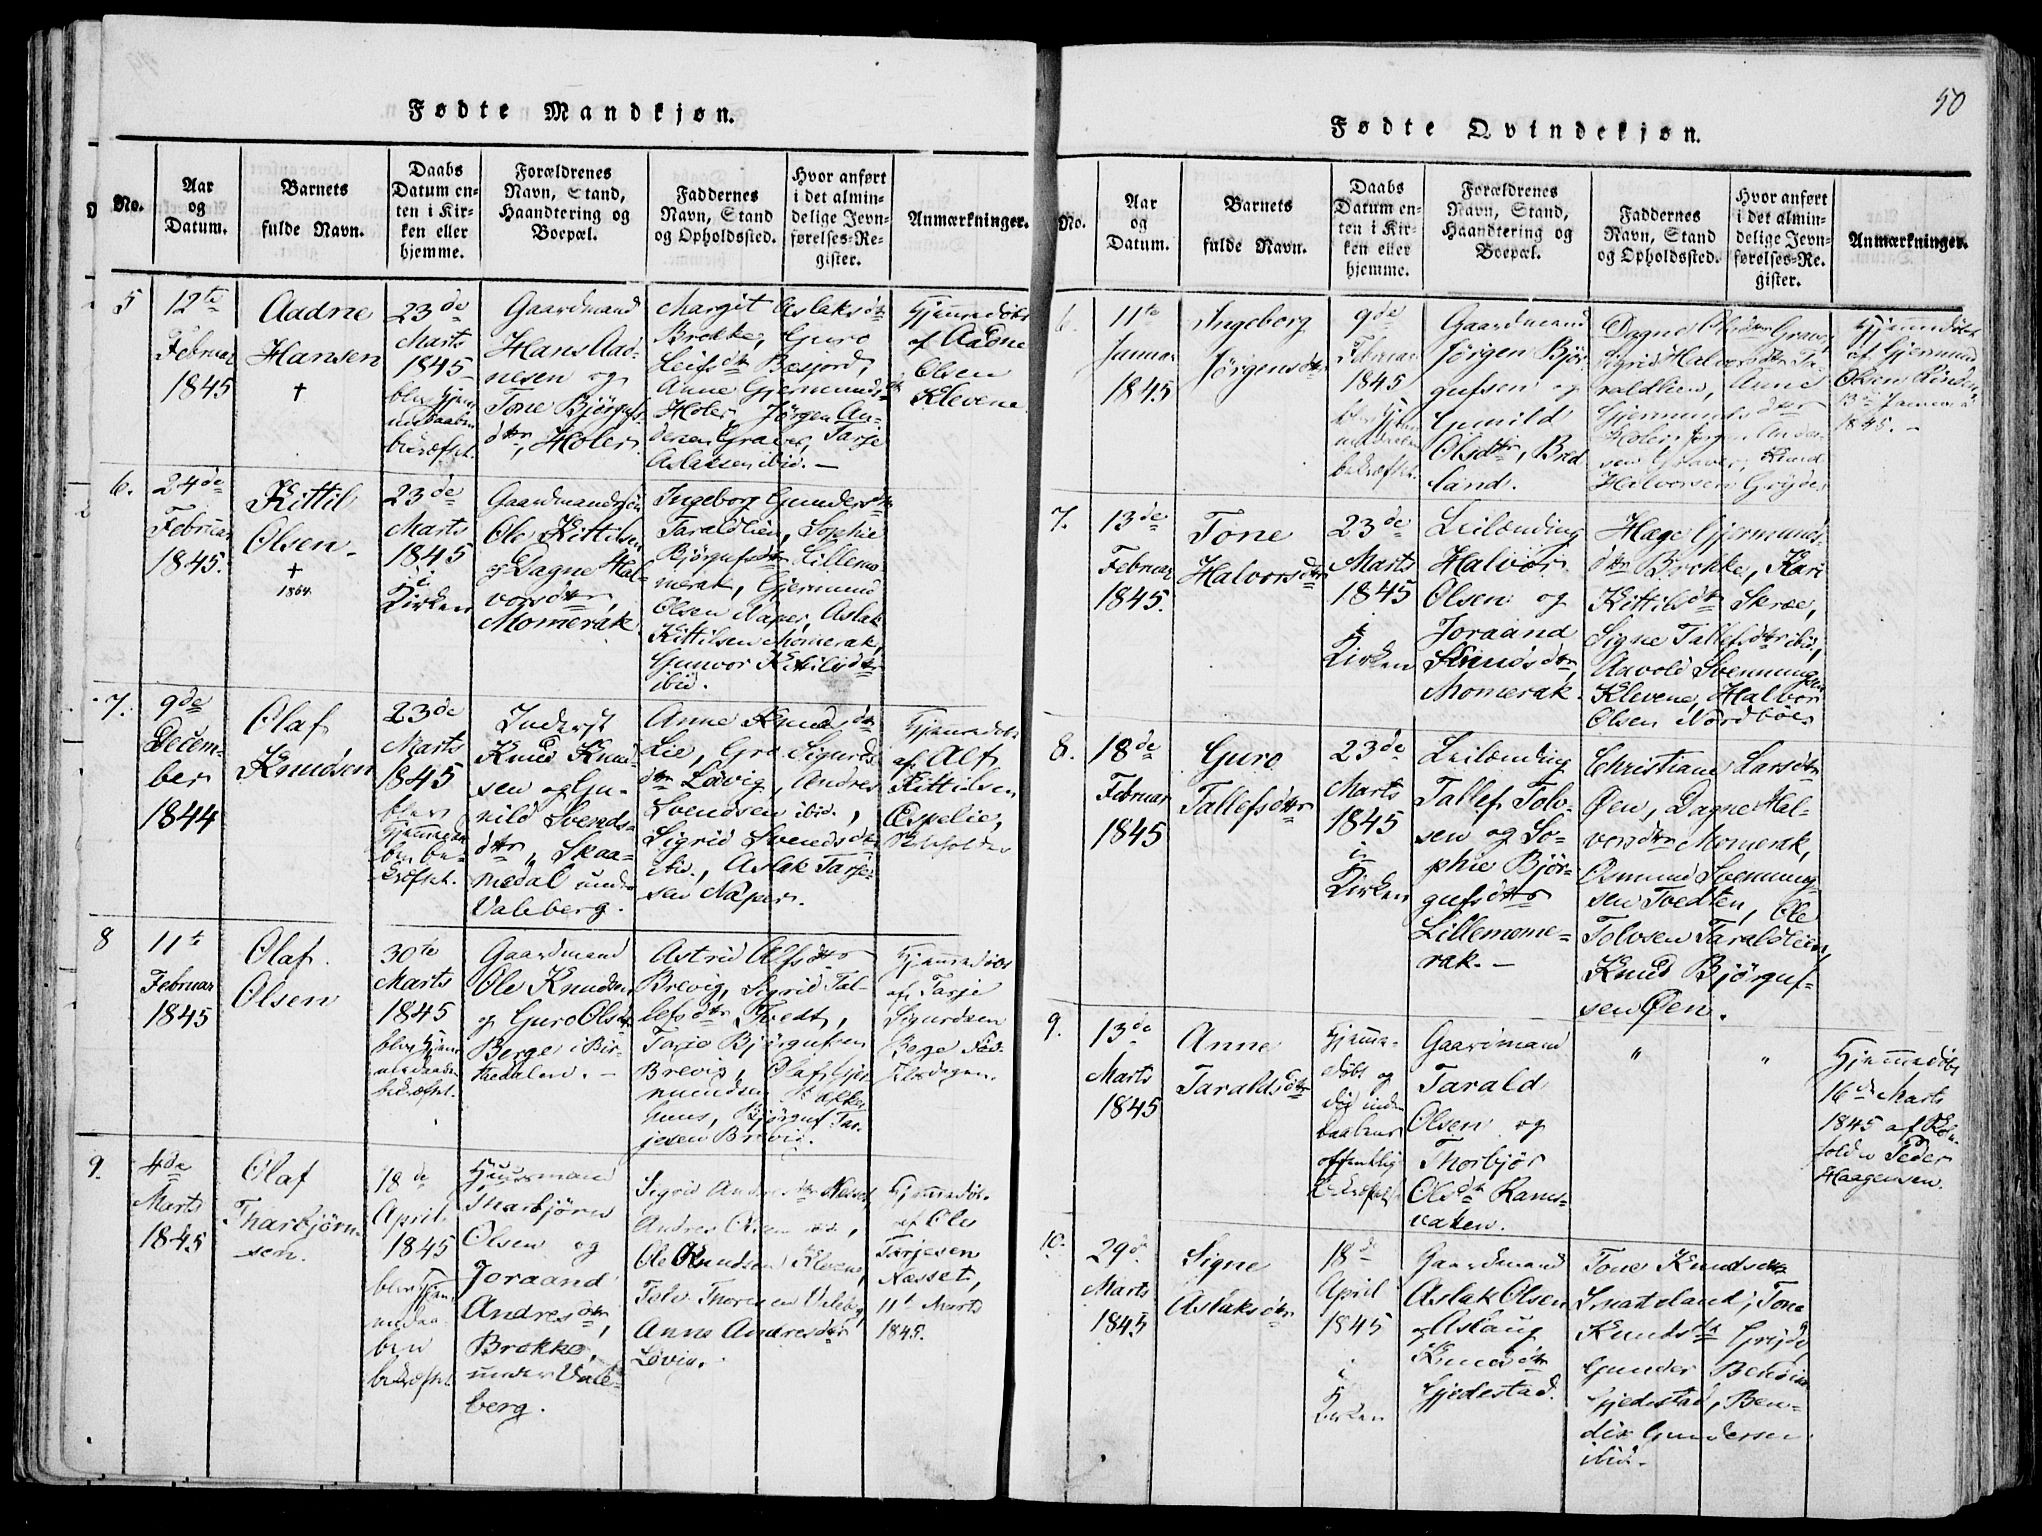 50
Fødte Mandkjøn.
No.
Aar
og
Datum.
Barnets
fulde Navn.
Daabs
Datum en-
ten i Kir-
ken eller
hjemme.
Forældrenes
Navn, Stand,
Haandtering og
Boepæl.
Faddernes
Navn, Stand
og Opholdssted.
Hvor anført
i det almin-
delige Jevn-
førelses-Re-
gister.
Anmærkninger.
5
12te
Februar
1845
Aadne
Hansen
†
23de
Marts
1845
blev Hjem-
medaaben
bekræftet.
Gaardmand
Hans Aad-
nesen og
Tone Björgufs-
dtr, Holer.
Margit Aslaksdtr
Brokke, Guro
Leifsdtr Besjord,
Anne Gjermundsdtr
Holer, Jørgen An-
dersen Graver, Tarje
Aslaksen ibid. —
Hjemmedöbt
af Aadne
Olsen
Klevene.
6.
24de
Februar
1845.
Kittil
Olsen.
†
1864.
23de
Marts
1845
i
Kirken
Gaardmandssön
Ole Kittilsen
og Dagne Hal-
vorsdtr,
Momerak.
Ingeborg Gundersdtr
Taraldlien, Sophie
Björgufsdtr Lillemo-
merak, Gjermund
Olsen Naper, Aslak
Kittilsen Momerak,
Gunvor Kittilsdtr
ibid.
7.
9de
Decem-
ber
1844
Olaf
Knudsen
23de
Marts
1845
blev
Hjemmedaa-
ben be-
kræftet.
Inderst
Knud Knud-
sen og Gu-
nild Svends-
dtr, Skaa-
medal under
Valeberg.
Anne Knudsdtr
Lie, Gro Sigurds-
dtr Lövig, Andres
Svendsen ibid.,
Sigrid Svendsdtr
ibid., Aslak Tarje-
sen Naper.
Hjemmedöbt
af Alf
Kittilsen
Espelie,
8
11te
Februar
1845
Olaf
Olsen
30te
Marts
1845
blev Hjem-
medaaben
bekræftet.
Gaardmand
Ole Knudsen
og Guro Olsdtr
Berge i Bir-
tedalen. —
Astrid Alfsdtr
Brevig, Sigrid Tal-
lefsdtr Tvedt,
Tarje Björgufsen
Brevig, Olaf Gjer-
mundsen
Björguf Tar-
jesen Brevig.
Hjemmedöbt
af Tarje
Sigurdsen
Berge
9.
4de
Marts
1845
Olaf
Tharbjörn-
sen.
18de
April
1845
blev Hjem-
medaa-
ben
bekræftet
Huusmand
Tharbjörn
Olsen og
Joraand
Andresdtr,
Brokke,
under Vale-
berg.
Sigrid Andresdtr Nesset,
Andres Olsen
Ole Knudsen Klevene,
Tolv Thoresen Valeberg,
Anne Andresdtr
Lövig.
Hjemmedöbt
af Ole
Tarjesen
Næsset,
11te Marts
1845.
Fødte Qvindekjøn.
No.
Aar
og
Datum.
Barnets
fulde Navn.
Daabs
Datum en-
ten i Kir-
ken eller
hjemme.
Forældrenes
Navn, Stand,
Haandtering og
Boepæl.
Faddernes
Navn, Stand
og Opholdssted.
Hvor anført
i det almin-
delige Jevn-
førelses-Re-
gister.
Anmærkninger.
6.
11te
Januar
1845
Ingeborg
Jörgensdtr
9de
Februar
1845
blev Hjem-
medaaben
bekræftet.
Gaardmand
Jörgen Björ-
gufsen og
Gunild
Olsdtr, Bred-
land.
Dagne Graver,
Sigrid Halvorsdtr Ta-
raldlien, Anne
Gjermundsdtr
Holer, Jörgen Ander-
sen Graver, Knud
Halvorsen Gryde.
Hjemmedöbt
af Gjermund
Olsen
13de Januar
1845. —
7.
13de
Februar
1845.
Tone
Halvorsdtr
23de
Marts
1845
i
Kirken
Leilænding
Halvor
Olsen og
Joraand
Knudsdtr,
Momerak.
Hæge Gjermunds-
dtr Brokke, Kari
Kittilsdtr Skræe,
Signe Tallefsdtr ibid,
Aavold Svenningsen
Klevene, Halvor
Olsen Nordboe
8.
18de
Februar
1845
Guro
Tallefsdtr
23de
Marts
1845
i
Kirken
Leilænding
Tallef Tolv-
sen og So-
phie Björ-
gufsdtr
Lillemome-
rak. —
Christiane Larsdtr
Öen, Dagne Hal-
vorsdtr Momerak,
Osmund Svenning-
sen Tvedten, Ole
Tolvsen Taraldlien,
Knud Björguf-
sen Öen.
9.
13de
Marts
1845
Anne
Taraldsdtr
Hjemme-
döbt og
död inden
Daabens
offentlig
bekræftelse
Gaardmand
Tarald
Olsen og
Thorbjör
Olsdtr Rams-
vaten.
"
"
Hjemmedöbt
16de Marts
1845 af
Peder
Haagensen.
10.
29de
Marts
1845
Signe
Aslaksdtr
18de
April
1845
i
Kirken
Gaardmand
Aslak Olsen
og Aslaug
Knudsdtr
Gjedestad.
Tone Knudsdtr
Smatsland, Tone
Knudsdtr Gryde,
Gunder Bendixen
Gjedestad, Ben-
dix Gundersen
ibid. —